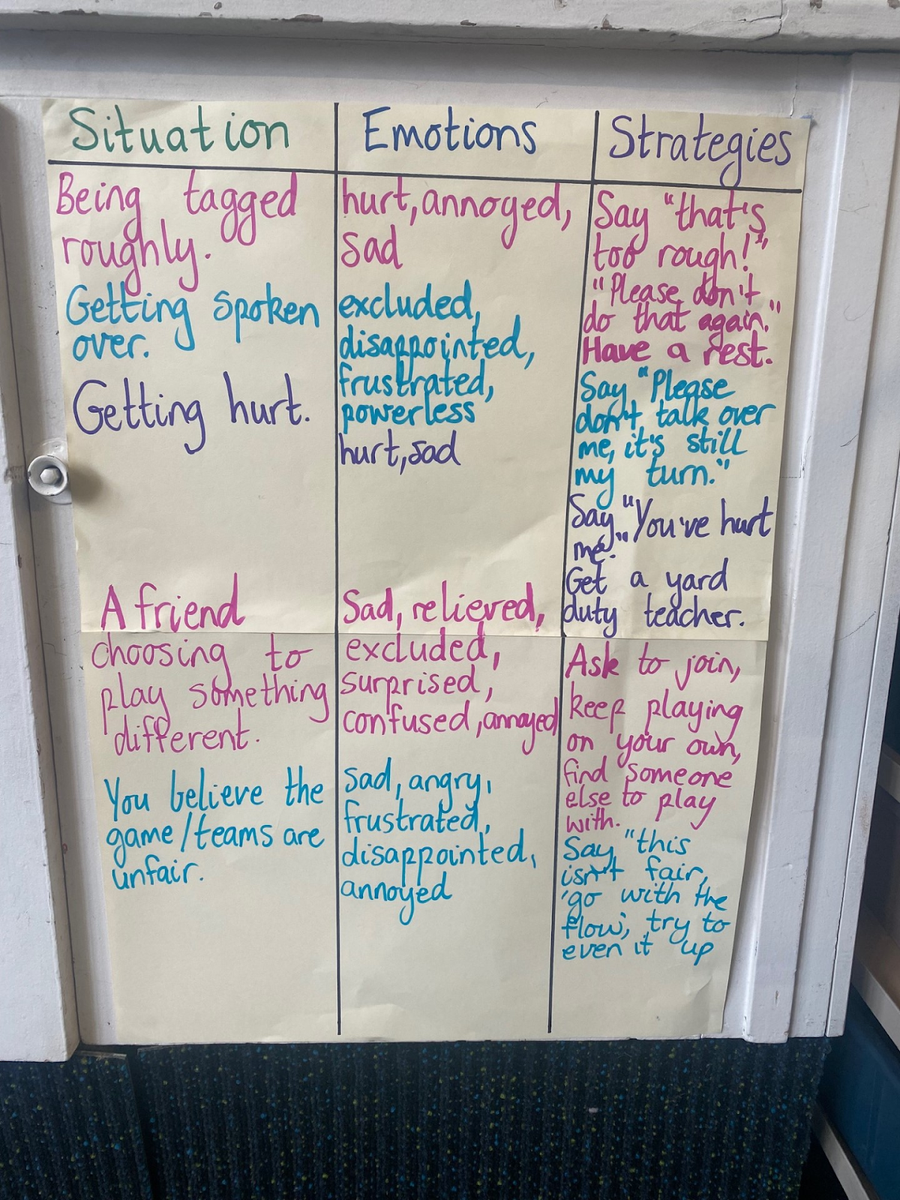 Situation
Being tagged
roughly.
Getting spoken
over.
Getting hurt.
A friend
choosing to
play something
different.
You believe the
game/teams are
unfair.
Emotions
hurt, annoyed,
sad
excluded,
disappointed,
frustrated,
powerless
hurt, sad
Sad, relieved,
excluded,
surprised,
confused, annoyed
sad, angry,
frustrated,
disappointed,
annoyed
Strategies
Say "that's
too rough!"
"Please don't
do that again."
Have a rest.
Say "Please
don't talk over
me, it's still
my turn."
Say "You've hurt
me."
Get a yard
duty teacher.
Ask to join,
keep playing
on your own,
find someone
else to play
with.
Say "this
isn't fair,
'go with the
flow', try to
even it up